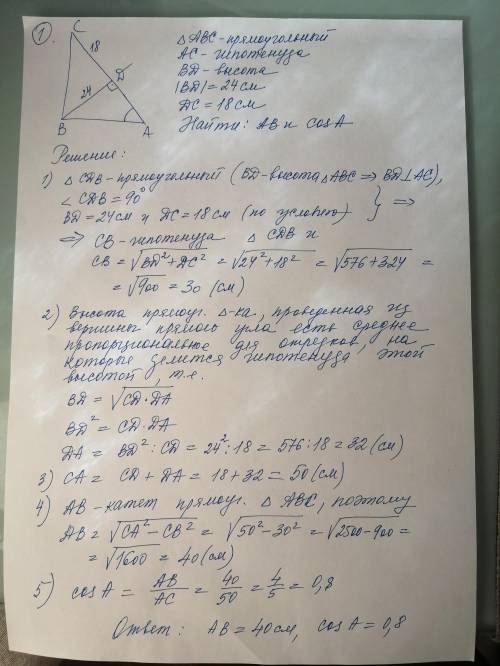 1
C
18
D
24
B
A
△ABC - прямоугольный
AC - гипотенуза
BD - высота
|BD| = 24 см
DC = 18 см
Найти: AB и cosA
Решение:
1) △ CDB - прямоугольный (BD - высота △ABC ⇒ BD⊥AC),
∠ CDB = 90°
BD = 24 см и DC = 18 см (по условию) } ⇒
⇒ CB - гипотенуза △ CDB и
CB = √BD² + DC² = √24² + 18² = √576 + 324 =
= √900 = 30 (см)
2) Высота прямоуг. △-ка, проведенная из
вершины прямого угла есть среднее
пропорциональное для отрезков, на
которые делится гипотенуза этой
высотой, т.е.
BD = √CD·DA
BD² = CD·DA
DA = BD² : CD = 24² : 18 = 576 : 18 = 32 (см)
3) CA = CD + DA = 18 + 32 = 50 (см)
4) AB - катет прямоуг. △ ABC, поэтому
AB = √CA² - CB² = √50² - 30² = √2500 - 900 =
= √1600 = 40 (см)
5) cosA = AB/AC = 40/50 = 4/5 = 0,8
Ответ: AB = 40 см, cosA = 0,8